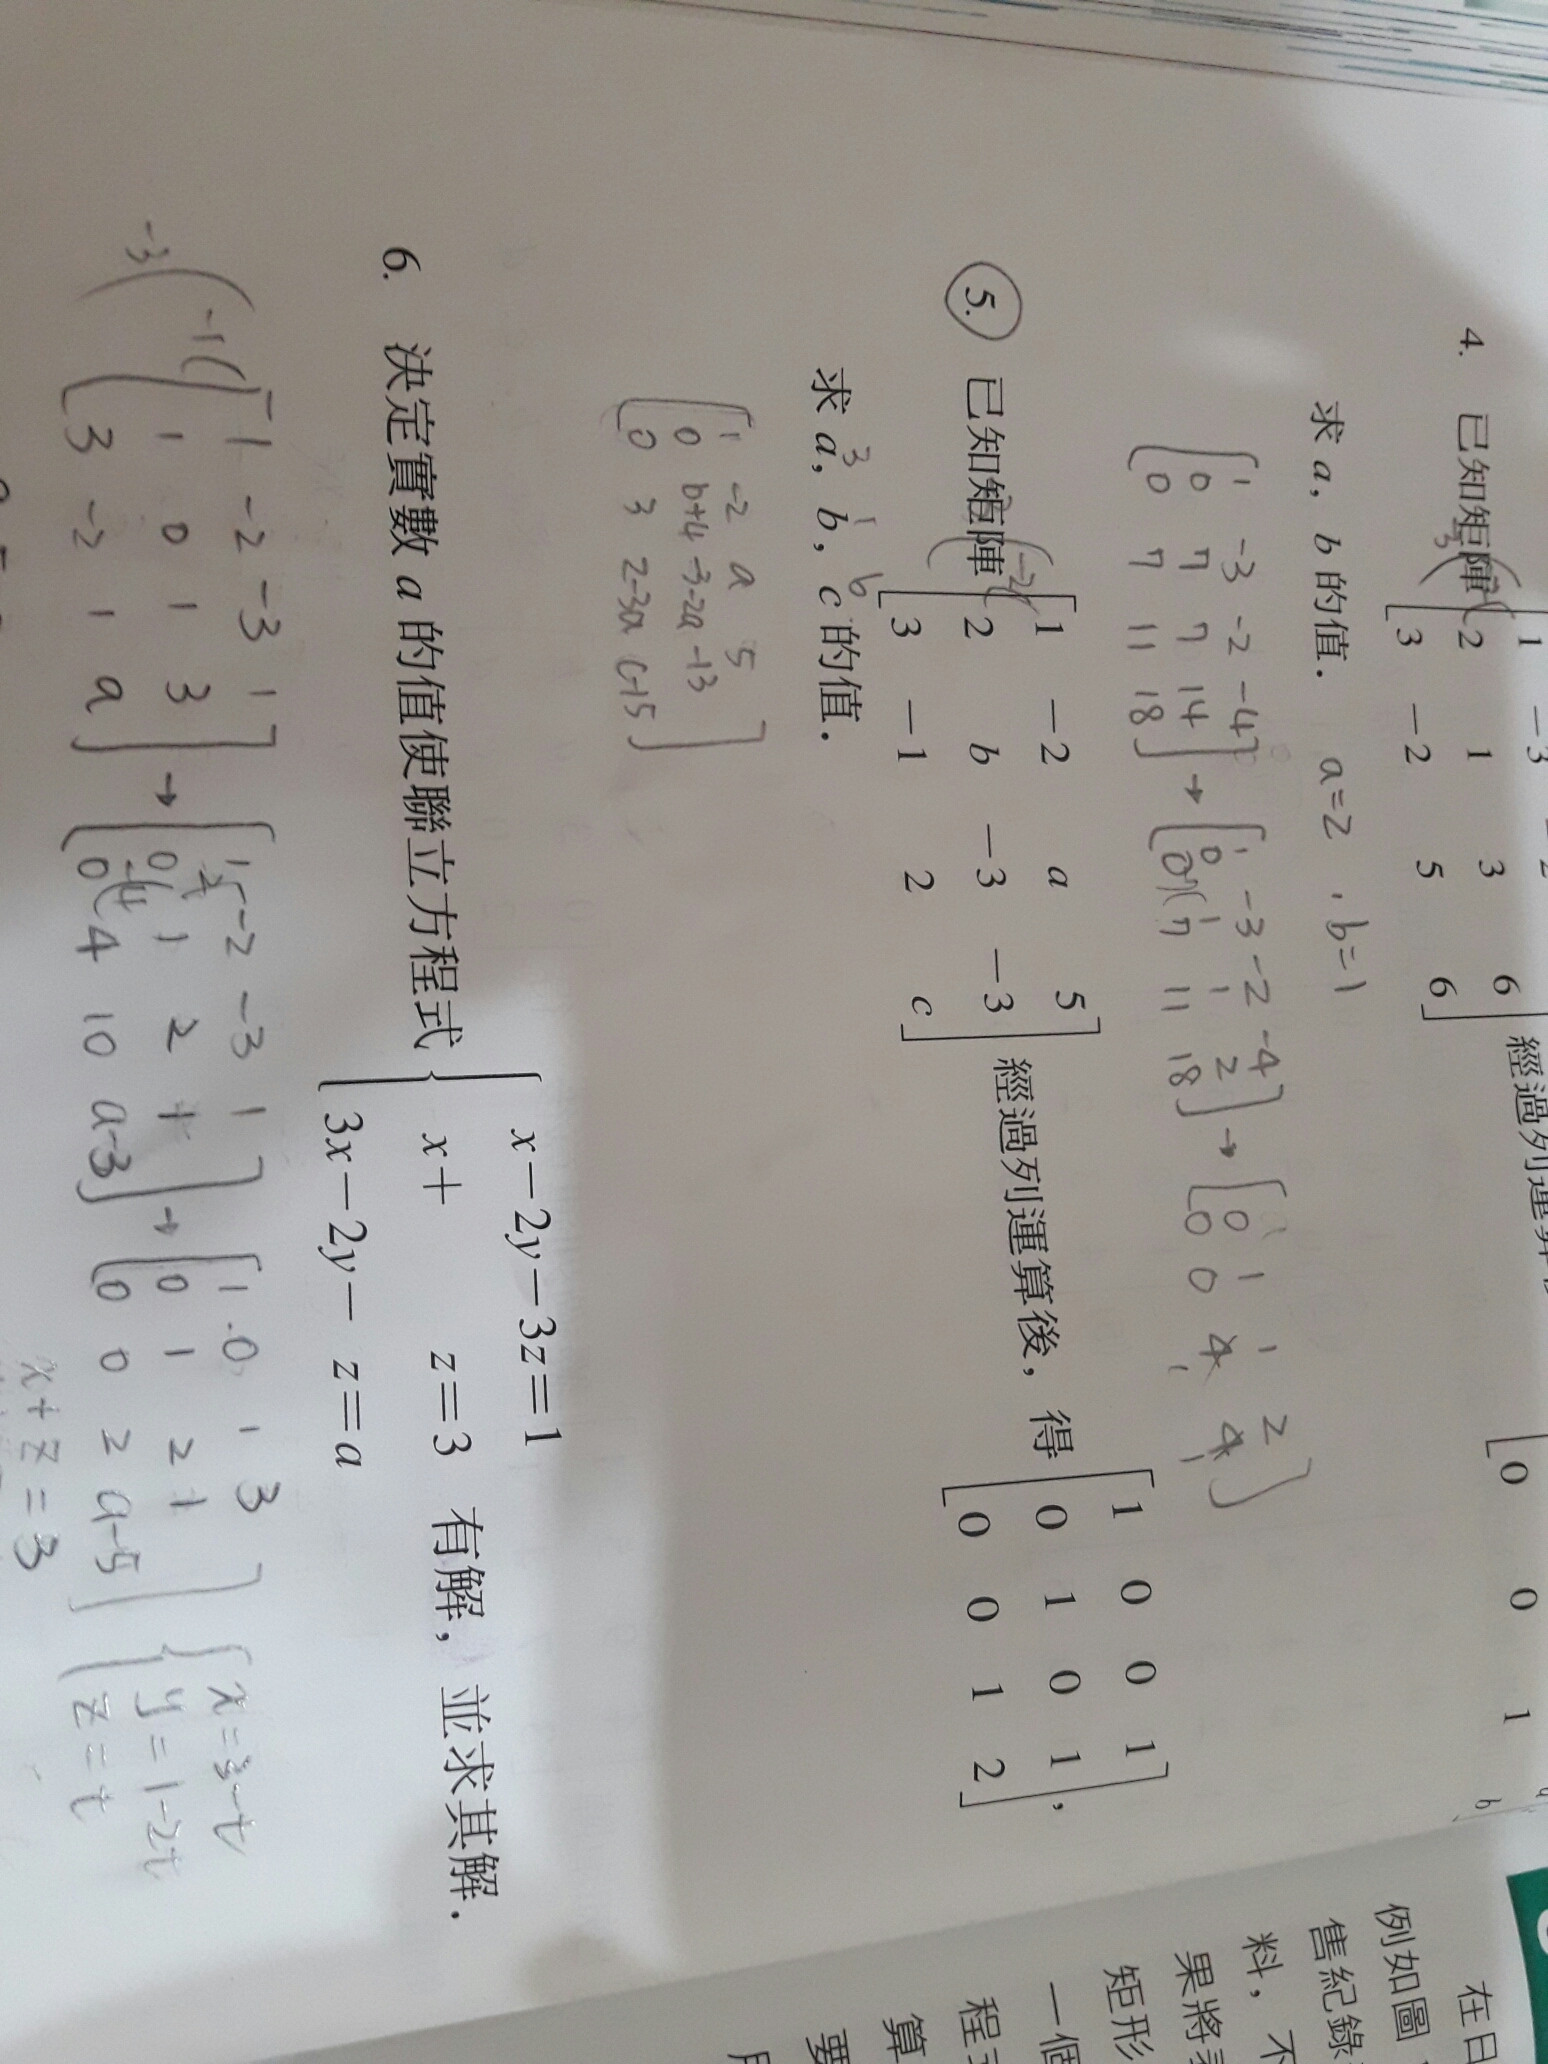 4. 已知矩陣
1 -3
2 1 3 6
3 -2 5 6
經過列運算
0 0 1 b
求 a, b 的值. a=2, b=1
1 -3 -2 -4
0 7 7 14
0 7 11 18
→
1 -3 -2 -4
0 1 1 2
0 7 11 18
→
0 1 1 2
0 0 4 4
5. 已知矩陣
1 -2 a 5
2 b -3 -3
3 -1 2 c
經過列運算後, 得
1 0 0 1
0 1 0 1
0 0 1 2
,
求 a, b, c 的值.
3 1 6
1 -2 a 5
0 b+4 -3-2a -13
0 3 2-3a c-15
6. 決定實數 a 的值使聯立方程式
x-2y-3z=1
x+ z=3
3x-2y- z=a
有解, 並求其解.
1 -2 -3 1
1 0 1 3
3 -2 1 a
→
1 -2 -3 1
0 1 2 1
0 4 10 a-3
→
1 0 1 3
0 1 2 1
0 0 2 a-5
x=3-t
y=1-2t
z=t
x+z=3
在日
例如圖
售紀錄
料, 不
果將
矩形
一個
程
算
要